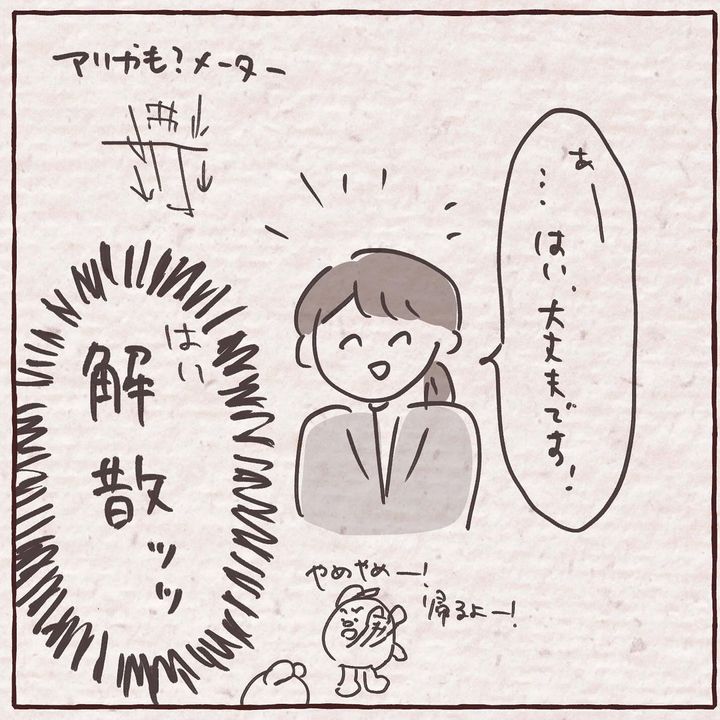 アリかも？メーター
あー
…はい、大丈夫です！
はい
解散ッッ
やめやめー！
帰るよー！